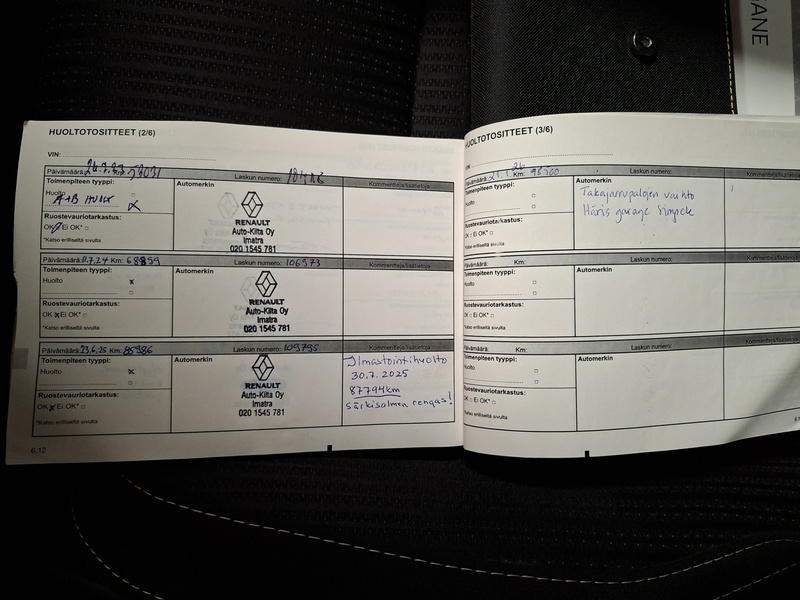 ANE
HUOLTOTOSITTEET (2/6)
VIN:
Päivämäärä: Km: Laskun numero:
Kommentteja/lisätietoja
Toimenpiteen tyyppi: Automerkin
Huolto
A+B HUOLTO x
Ruostevauriotarkastus:
OK Ei OK*
*Katso erilliseltä sivulta
RENAULT
Auto-Kilta Oy
Imatra
020 1545 781
Päivämäärä: Km: 68859 Laskun numero: 106973
Kommentteja/lisätietoja
Toimenpiteen tyyppi: Automerkin
Huolto x
Ruostevauriotarkastus:
OK x Ei OK*
*Katso erilliseltä sivulta
RENAULT
Auto-Kilta Oy
Imatra
020 1545 781
Päivämäärä: 23.6.25 Km: 85986 Laskun numero: 109795
Kommentteja/lisätietoja
Toimenpiteen tyyppi: Automerkin
Huolto x
Ruostevauriotarkastus:
OK x Ei OK*
*Katso erilliseltä sivulta
RENAULT
Auto-Kilta Oy
Imatra
020 1545 781
Ilmastointihuolto
30.7.2025
87794km
Särkisalmen rengas!
6.12
HUOLTOTOSITTEET (3/6)
VIN:
Päivämäärä: Km: Laskun numero:
Kommentteja/lisätietoja
Toimenpiteen tyyppi: Automerkin
Huolto
Takajarrupalojen vaihto
Häris garage Simpele
Ruostevauriotarkastus:
OK Ei OK*
*Katso erilliseltä sivulta
Päivämäärä: Km: Laskun numero:
Kommentteja/lisätietoja
Toimenpiteen tyyppi: Automerkin
Huolto
Ruostevauriotarkastus:
OK Ei OK*
*Katso erilliseltä sivulta
Päivämäärä: Km: Laskun numero:
Kommentteja/lisätietoja
Toimenpiteen tyyppi: Automerkin
Huolto
Ruostevauriotarkastus:
OK Ei OK*
*Katso erilliseltä sivulta